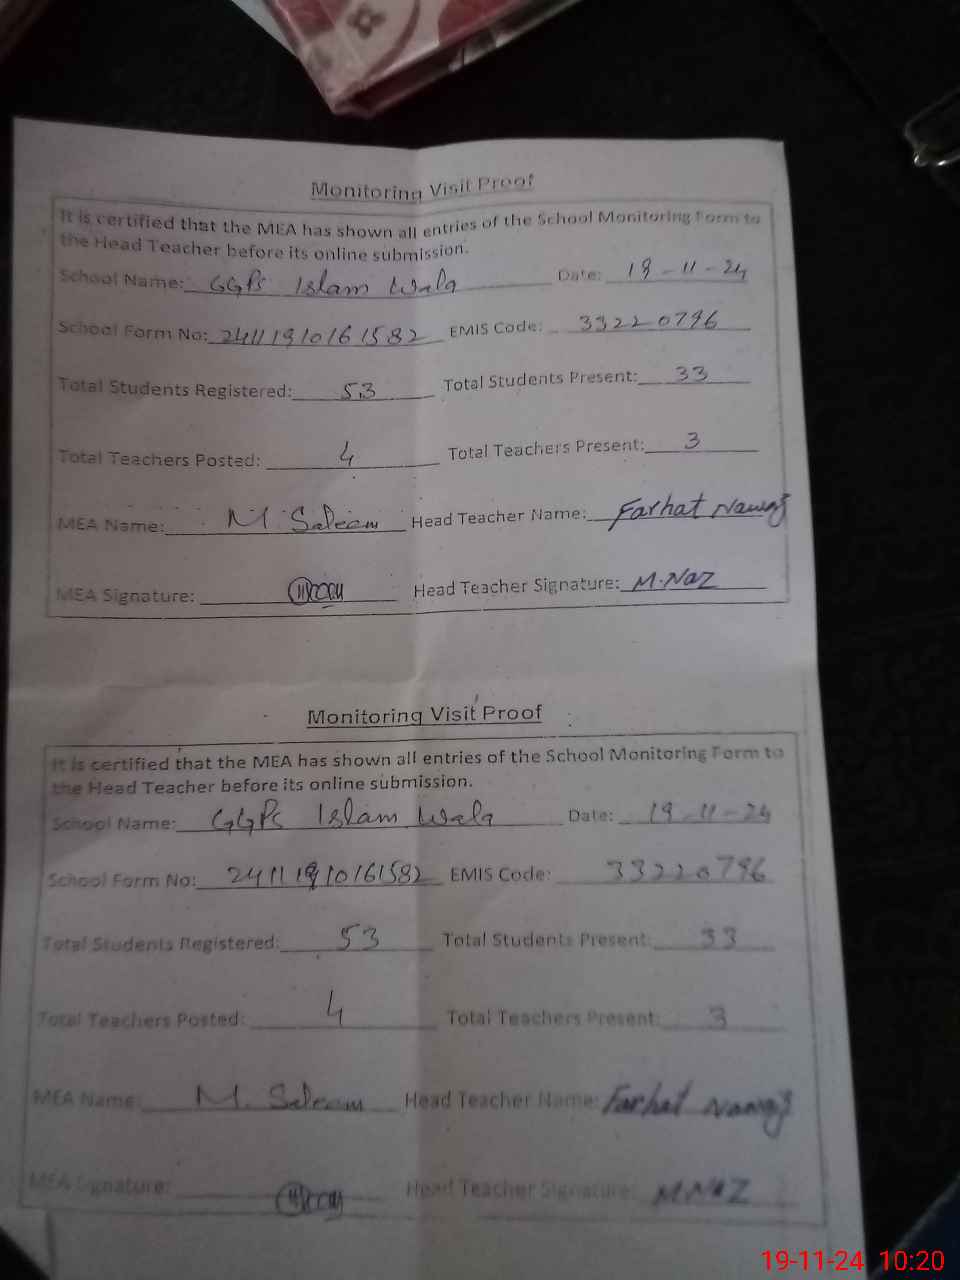 Monitoring Visit Proof
It is certified that the MEA has shown all entries of the School Monitoring Form to
the Head Teacher before its online submission.
School Name: GGPS Islam Wala Date: 19-11-24
School Form No: 24111910161582 EMIS Code: 33220796
Total Students Registered: 53 Total Students Present: 33
Total Teachers Posted: 4 Total Teachers Present: 3
MEA Name: M. Saleem Head Teacher Name: Farhat Nawaz
MEA Signature: Head Teacher Signature: M.Naz
Monitoring Visit Proof
It is certified that the MEA has shown all entries of the School Monitoring Form to
the Head Teacher before its online submission.
School Name: GGPS Islam Wala Date: 19-11-24
School Form No: 24111910161582 EMIS Code: 33220796
Total Students Registered: 53 Total Students Present: 33
Total Teachers Posted: 4 Total Teachers Present: 3
MEA Name: M. Saleem Head Teacher Name: Farhat Nawaz
MEA Signature: Head Teacher Signature: M.Naz
19-11-24 10:20